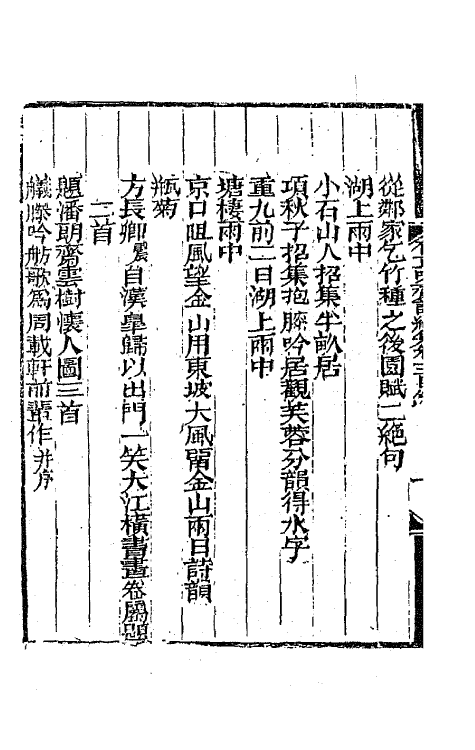 從鄰家乞竹種之後園賦二絕句
湖上雨中
小石山人招集半畝居
項秋子招集抱膝吟居觀芙蓉分韻得水字
重九前二日湖上雨中
塘棲雨中
京口阻風望金山用東坡大風留金山兩日詩韻
瓶菊
方長卿自漢皋歸以出門一笑大江橫書畫卷屬題
二首
題潘朗齋雲樹懷人圖三首
艤櫂吟舫歌爲周載軒前輩作并序